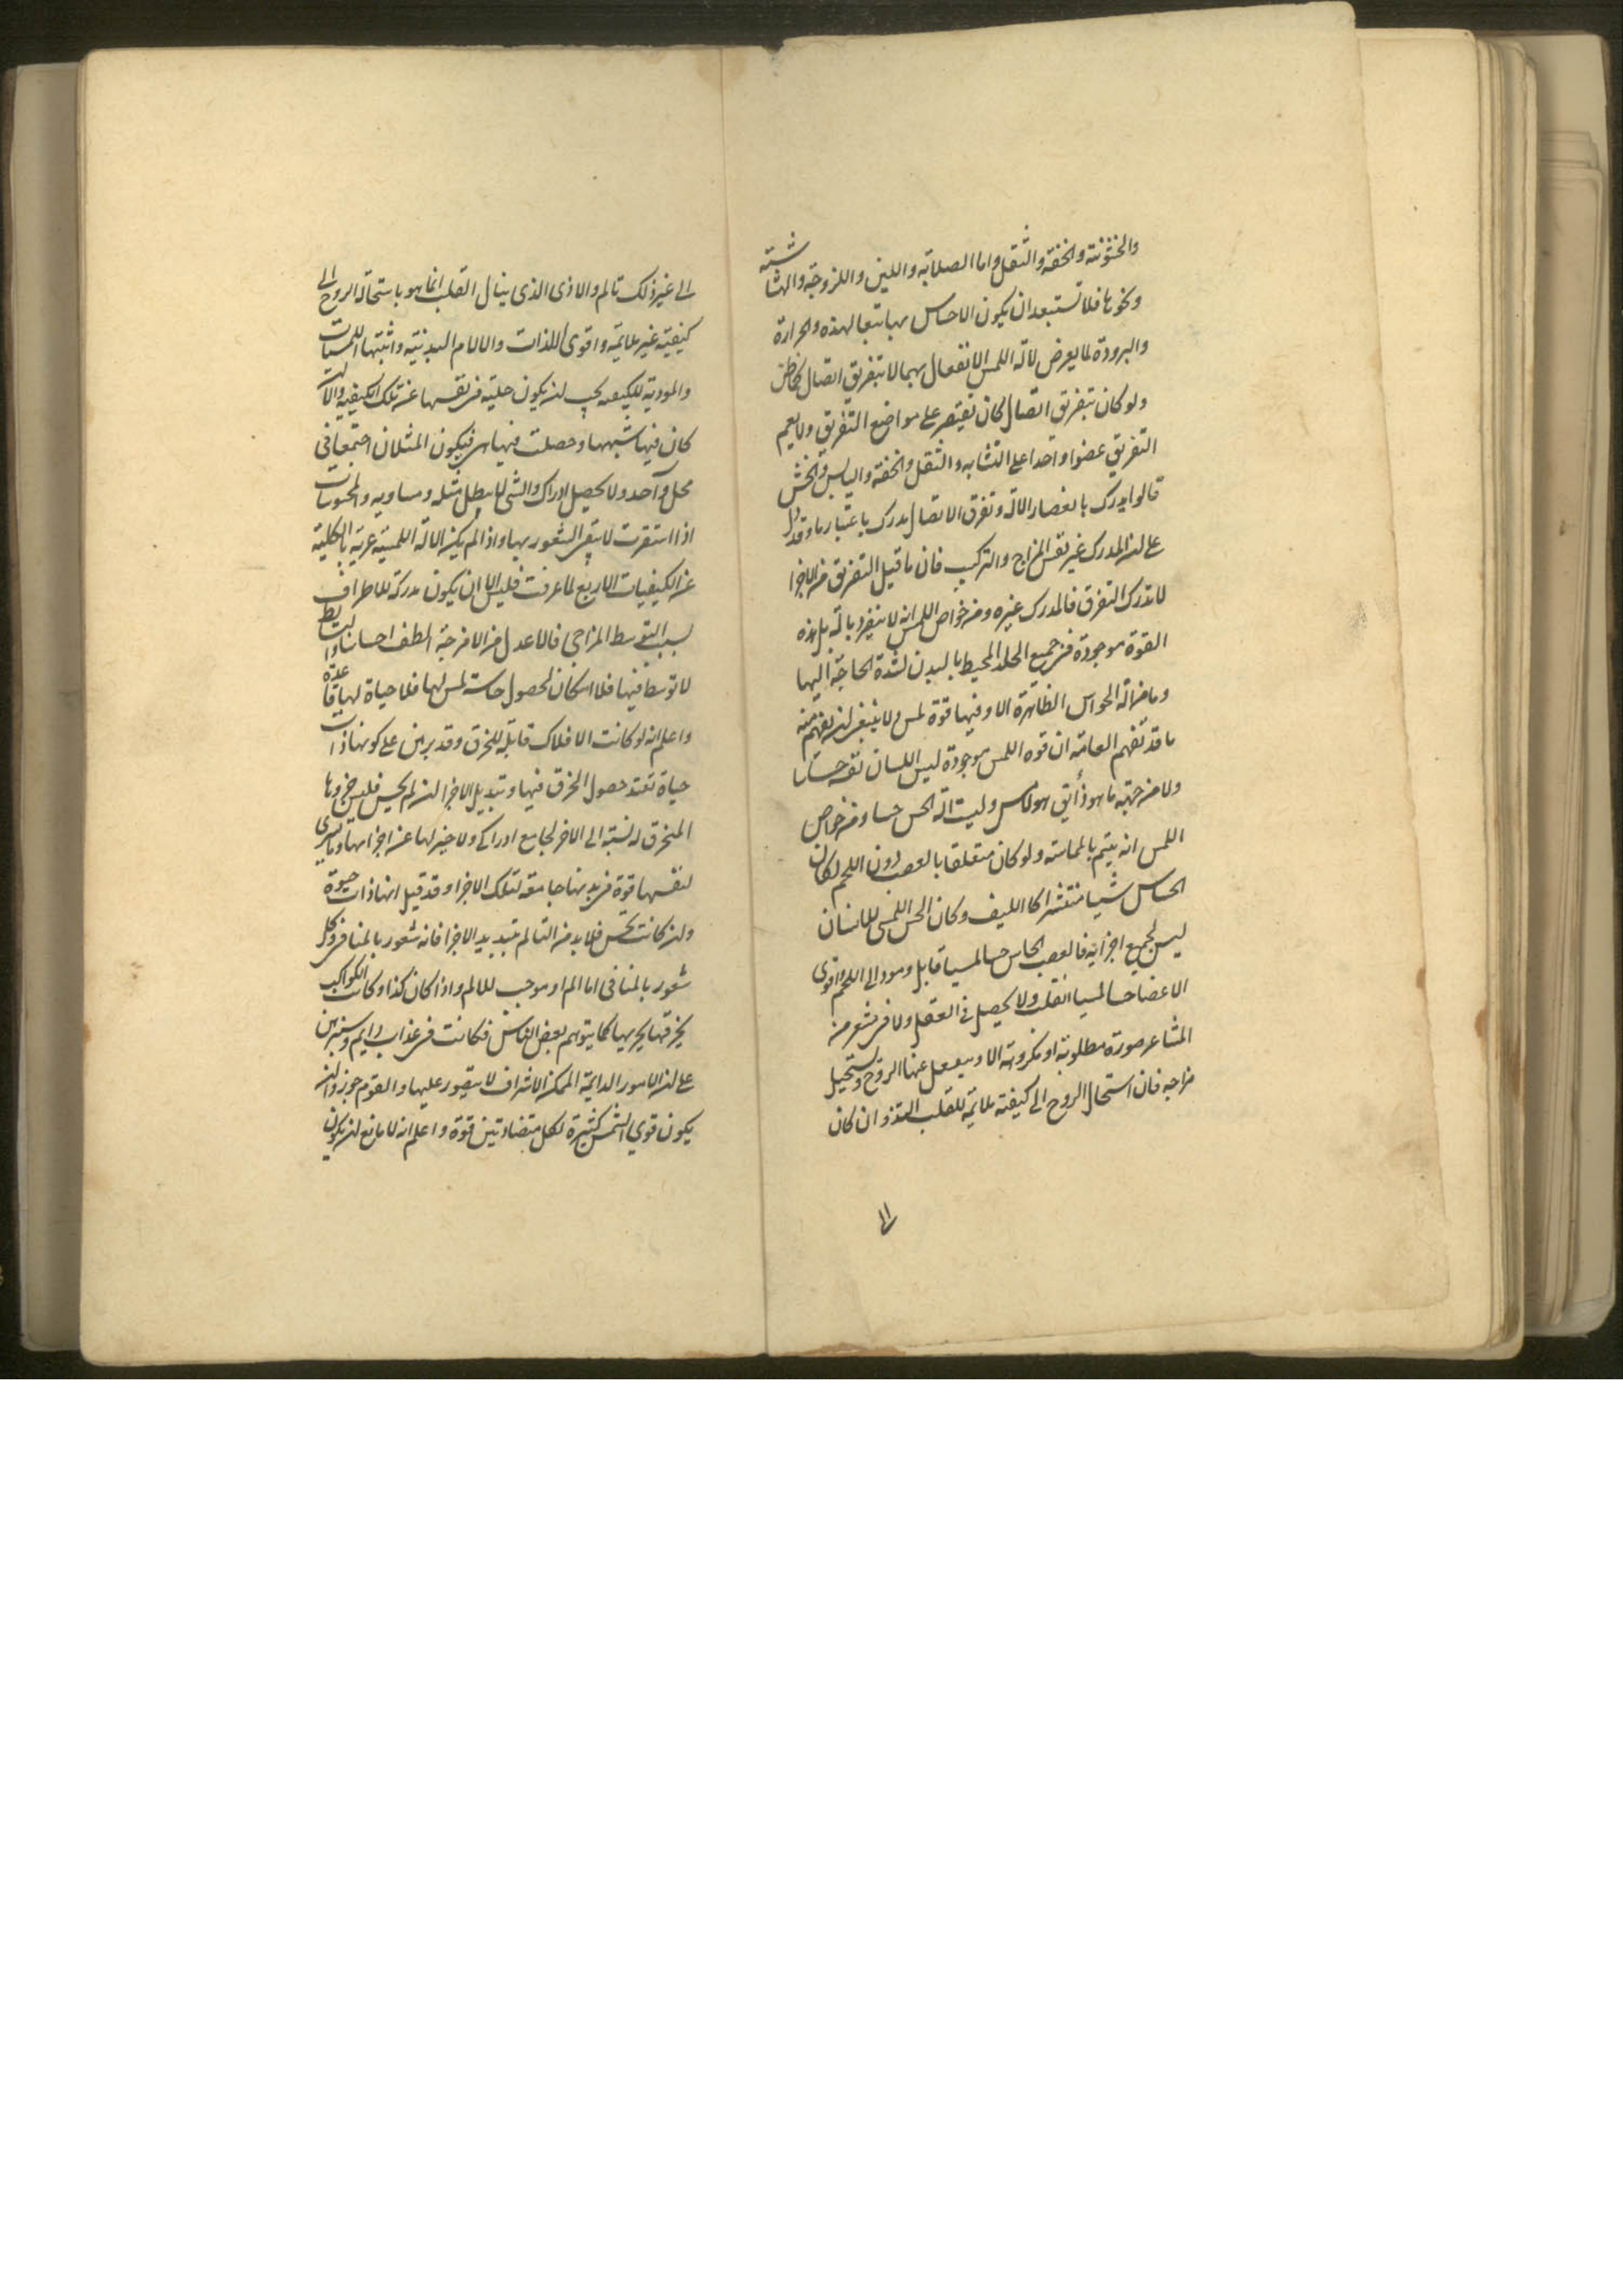 والخشونة والخفة والثقل واما الصلابة واللين واللزوجة والهشاشة
ونحوها فلا تستبعد ان يكون الاحساس بها تبعا لهذه والحرارة
والبرودة لما يعرض لآلة اللمس الانفعال بهما لا بتفريق اتصال كما ظن
ولو كان بتفريق اتصال لكان يقتصر على مواضع التفريق ولا يعم
التفريق عضوا واحدا على التشابه والثقل والخفة واليابس والخشن
قالوا يدرك بانعصار الآلة وتفرق الاتصال يدرك باعتبار ما وقد دل
على ان المدرك غير نفس المزاج والتركيب فان ما قبل التفريق من الاجزا
لا تدرك التفرق فالمدرك غيره ومن خواص اللمس انه لا ينفرد بآلة بل هذه
القوة موجودة في جميع الجلد المحيط بالبدن لشدة الحاجة اليها
وما من آلة الحواس الظاهرة الا وفيها قوة لمس ولا ينبغي ان يفهم منه
ما قد تفهم العامة ان قوه اللمس موجودة ليس اللسان نفسه حساسا
ولا من جهة ما هو ذائق هو لامس وليست آلة الحس حسا ومن خواص
اللمس انه يتم بالمماسة ولو كان متعلقا بالعصب دون اللحم لكان
الحساس شيا منتشرا كالليف وكان الحس اللمسي للانسان
ليس لجميع اجزائه فالعصب الحاس حسا لمسيا قابل ومود الى اللحم واقوى
الاعضا حسا لمسيا القلب ولا يحصل في العقل ولا في مشعر من
المشاعر صورة مطلوبة او مكروهة الا وينفعل عنها الروح ويستحيل
مزاجه فان استحال الروح الى كيفية ملائمة للقلب التذ وان كان
الى
الى غير ذلك تالم والاذى الذي ينال القلب انما هو باستحالة الروح الى
كيفية غير ملائمة واقوى اللذات والآلام البدنية واثبتها اللمسيات
والمودية للكيفية يجب ان يكون خلية في نفسها عن تلك الكيفية والا
كان فيها شبهها وحصلت فيها هي فيكون المثلان اجتمعا في
محل واحد ولا يحصل ادراك والشي لا يبطل مثله ومساويه والمحسوسات
اذا استقرت لا يبقى الشعور بها واذا لم يكن الآلة اللمسية عرية بالكلية
عن الكيفيات الاربع لما عرفت فليس الا ان يكون مدركة للاطراف
بسبب التوسط المزاجي فالاعدل من الامزجة الطف احساسا والبسائط
لا توسط فيها فلا امكان لحصول حاسة لمس لها فلا حياة لها قاعدة
واعلم انه لو كانت الافلاك قابلة للخرق وقد برهن على كونها ذات
حياة فعند حصول الخرق فيها وتبديل الاجزا ان لم يحس فليس جزوها
المنخرق له نسبة الى الاخر لجامع ادراكي ولا خبر لها عن اجزائها وما يسرى
لنفسها قوة في بدنها جامعة لتلك الاجزا وقد قيل انها ذات حيوة
وان كانت تحس فلا بد من التالم بتبديد الاجزا فانه شعور بالمنافى وكل
شعور بالمنافى اما الم او موجب للالم واذا كان كذا وكانت الكواكب
يخرقها بجريها كما يتوهم بعض الناس فكانت في عذاب دايم وسنبرهن
على ان الامور الدايمة الممكن الاشراف لا يتصور عليها والقوم جوزوا ان
يكون قوى اللمس كثيرة لكل متضادتين قوة واعلم انه لا مانع ان يكون